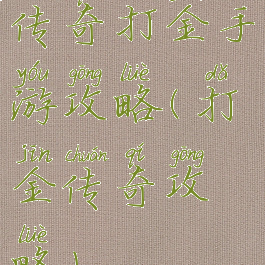 传奇打金手
yóu gōng lüè dǎ
游攻略(打
jīn chuán qí gōng
金传奇攻
lüè
略)